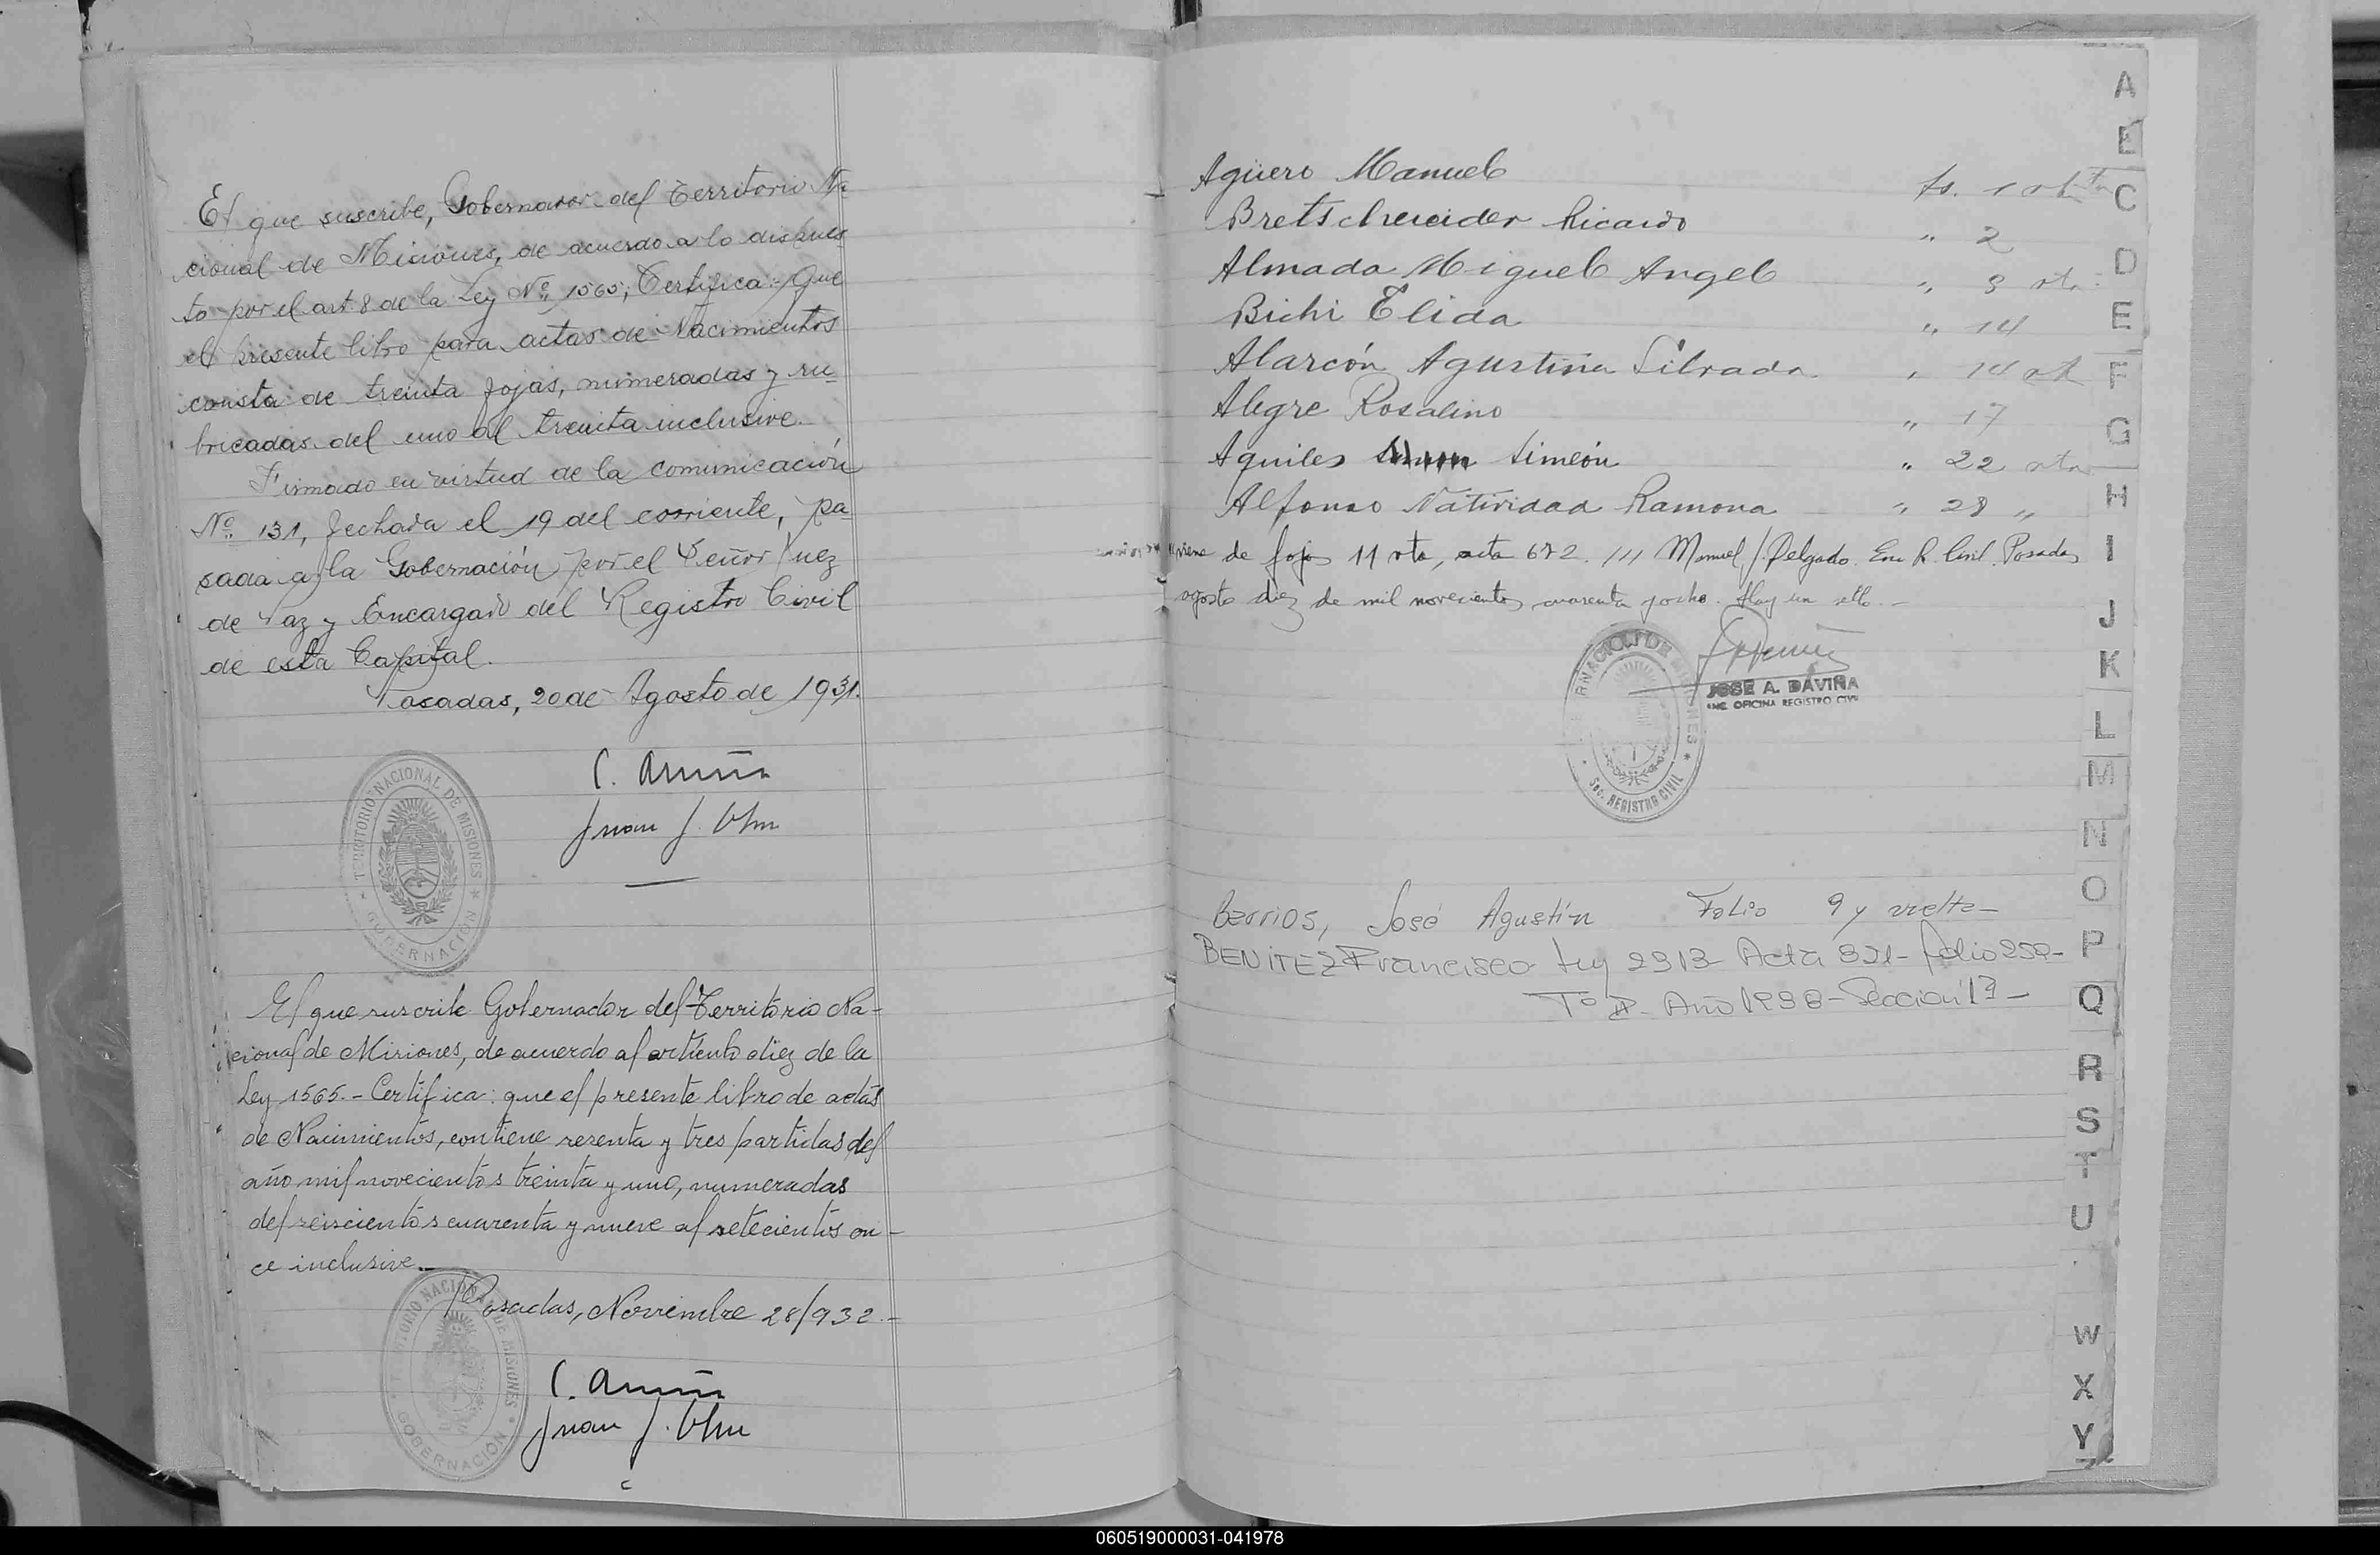 El que suscribe, Gobernador del Territorio Na-
cional de Misiones, de acuerdo a lo dispues-
to por el art 8 de la Ley Nº 1565; Certifica: Que
el presente libro para actas de Nacimientos
consta de treinta fojas, numeradas y ru-
bricadas del uno al treinta inclusive.
Firmado en virtud de la comunicación
Nº 131, fechada el 19 del corriente, pa-
sada a la Gobernación por el Señor Juez
de Paz y Encargado del Registro Civil
de esta Capital.
Posadas, 20 de Agosto de 1931.
TERRITORIO NACIONAL DE MISIONES
GOBERNACION
C. 
Juan J.
El que suscribe Gobernador del Territorio Na-
cional de Misiones, de acuerdo al artículo diez de la
Ley 1565.- Certifica: que el presente libro de actas
de Nacimientos, contiene sesenta y tres partidas del
año mil novecientos treinta y uno, numeradas
del seiscientos cuarenta y nueve al setecientos on-
ce inclusive.
Posadas, Noviembre 28/932.-
TERRITORIO NACIONAL DE MISIONES
GOBERNACION
C.
Juan J.
Agüero Manuel fs. 1 vta
Bretschneider Ricardo " 2
Almada Miguel Angel " 3 vta.
Bichi Elida " 14
Alarcón Agustina Silvada " 14 vta
Alegre Rosalino " 17
Aquiles Simeón " 22 vta
Alfonso Natividad Ramona " 28 "
viene de fojas 11 vta, acta 672. /// Manuel J. Delgado. Enc R. Civil. Posadas
agosto diez de mil novecientos cuarenta y ocho. Hay un sello.-
GOBERNACION DE MISIONES
Sec. REGISTRO CIVIL
JOSE A. DAVIÑA
ENC. OFICINA REGISTRO CIVIL
Berrios, José Agustín Folio 9 y vuelta-
BENITEZ Francisco Ley 2313- Acta 821- folio 259-
Tº Año 1938- Sección 1ª-
A
E
C
D
E
F
G
H
I
J
K
L
M
N
O
P
Q
R
S
T
U
W
X
Y
060519000031-041978